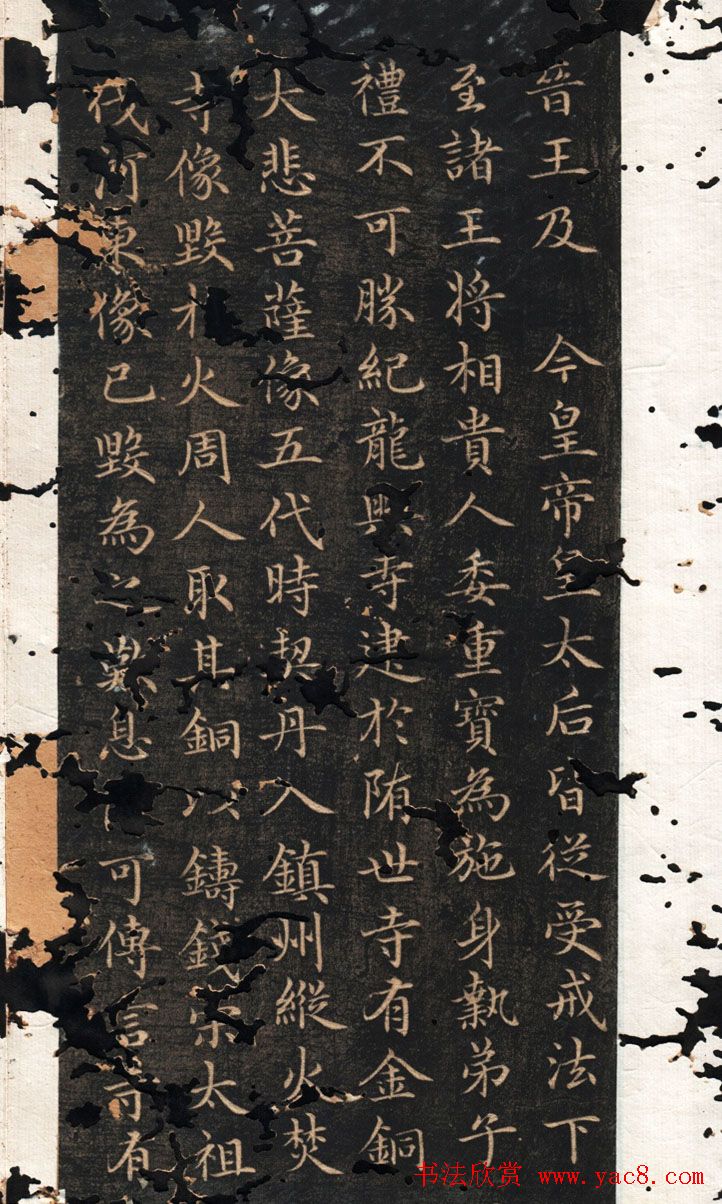 晉王及　今皇帝皇太后皆從受戒法下
至諸王將相貴人委重寶為施身執弟子
禮不可勝紀龍興寺建於隋世寺有金銅
大悲菩薩像五代時契丹入鎮州縱火焚
寺像毀於火周人取其銅以鑄錢宋太祖
伐河東像已毀為之歎息僧可傳言寺有
书法欣赏 www.yac8.com